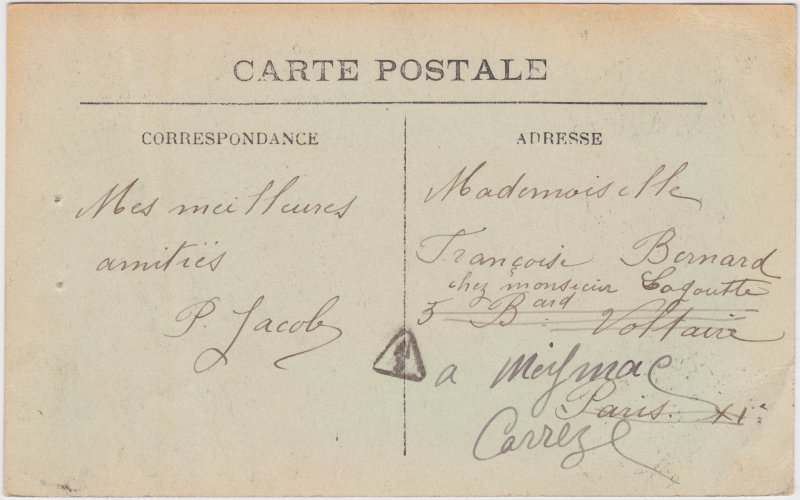 CARTE POSTALE
CORRESPONDANCE
ADRESSE
Mes meilleures
amitiés
P. Jacob
Mademoiselle
Françoise Bernard
chez monsieur Lagoutte
5 Bard Voltaire
a Meymac
Paris XIe
Corrèze